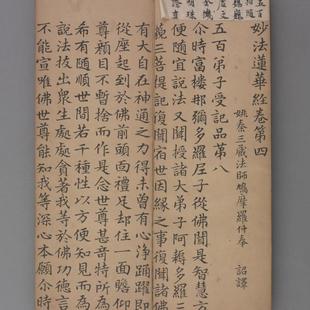 妙法蓮華經卷第四
姚秦三藏法師鳩摩羅什奉 詔譯
五百弟子受記品第八
尒時富樓那彌多羅尼子從佛聞是智慧方
便隨宜說法又聞授諸大弟子阿耨多羅三
藐三菩提記復聞宿世因緣之事復聞諸佛
有大自在神通之力得未曾有心淨踊躍即
從座起到於佛前頭面禮足却住一面瞻仰
尊顏目不暫捨而作是念世尊甚奇特所為
希有隨順世間若干種性以方便知見而為
說法拔出衆生處處貪著我等於佛功德言
不能宣唯佛世尊能知我等深心本願尒時